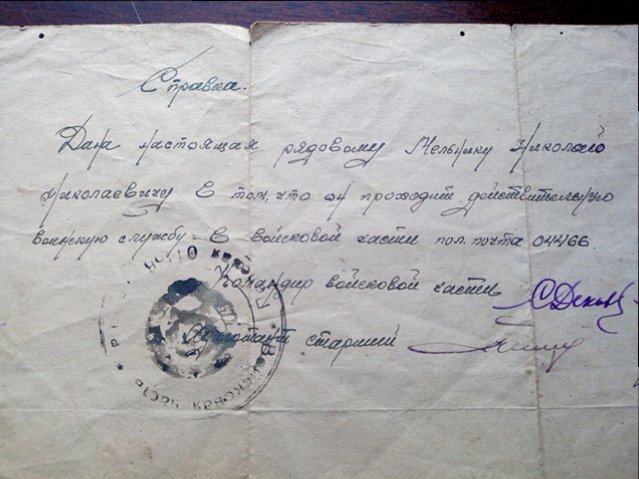 Справка.
Дана настоящая рядовому Мельнику Николаю
Николаевичу в том, что он проходит действительную
воинскую службу в войсковой части пол. почта 04466.
Командир войсковой части
Адъютант старший
Войсковая часть